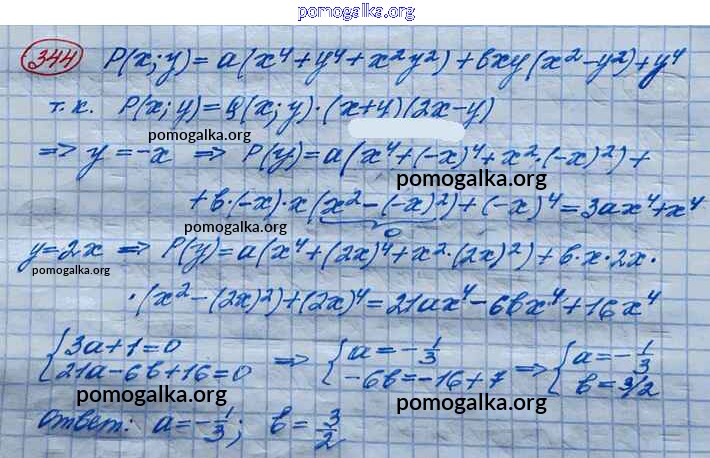 pomogalka.org
344 P(x;y)=a(x⁴+y⁴+x²y²)+bxy(x²-y²)+y⁴
т.к. P(x;y)=q(x;y)·(x+y)(2x-y)
pomogalka.org
=> y=-x => P(y)=a(x⁴+(-x)⁴+x²·(-x)²)+
pomogalka.org
+b·(-x)·x(x²-(-x)²)+(-x)⁴=3ax⁴+x⁴
0
pomogalka.org
y=2x => P(y)=a(x⁴+(2x)⁴+x²·(2x)²)+b·x·2x·
pomogalka.org
·(x²-(2x)²)+(2x)⁴=21ax⁴-6bx⁴+16x⁴
{3a+1=0 => {a=-1/3 => {a=-1/3
21a-6b+16=0 -6b=-16+7 b=3/2
pomogalka.org pomogalka.org
Ответ: a=-1/3; b=3/2